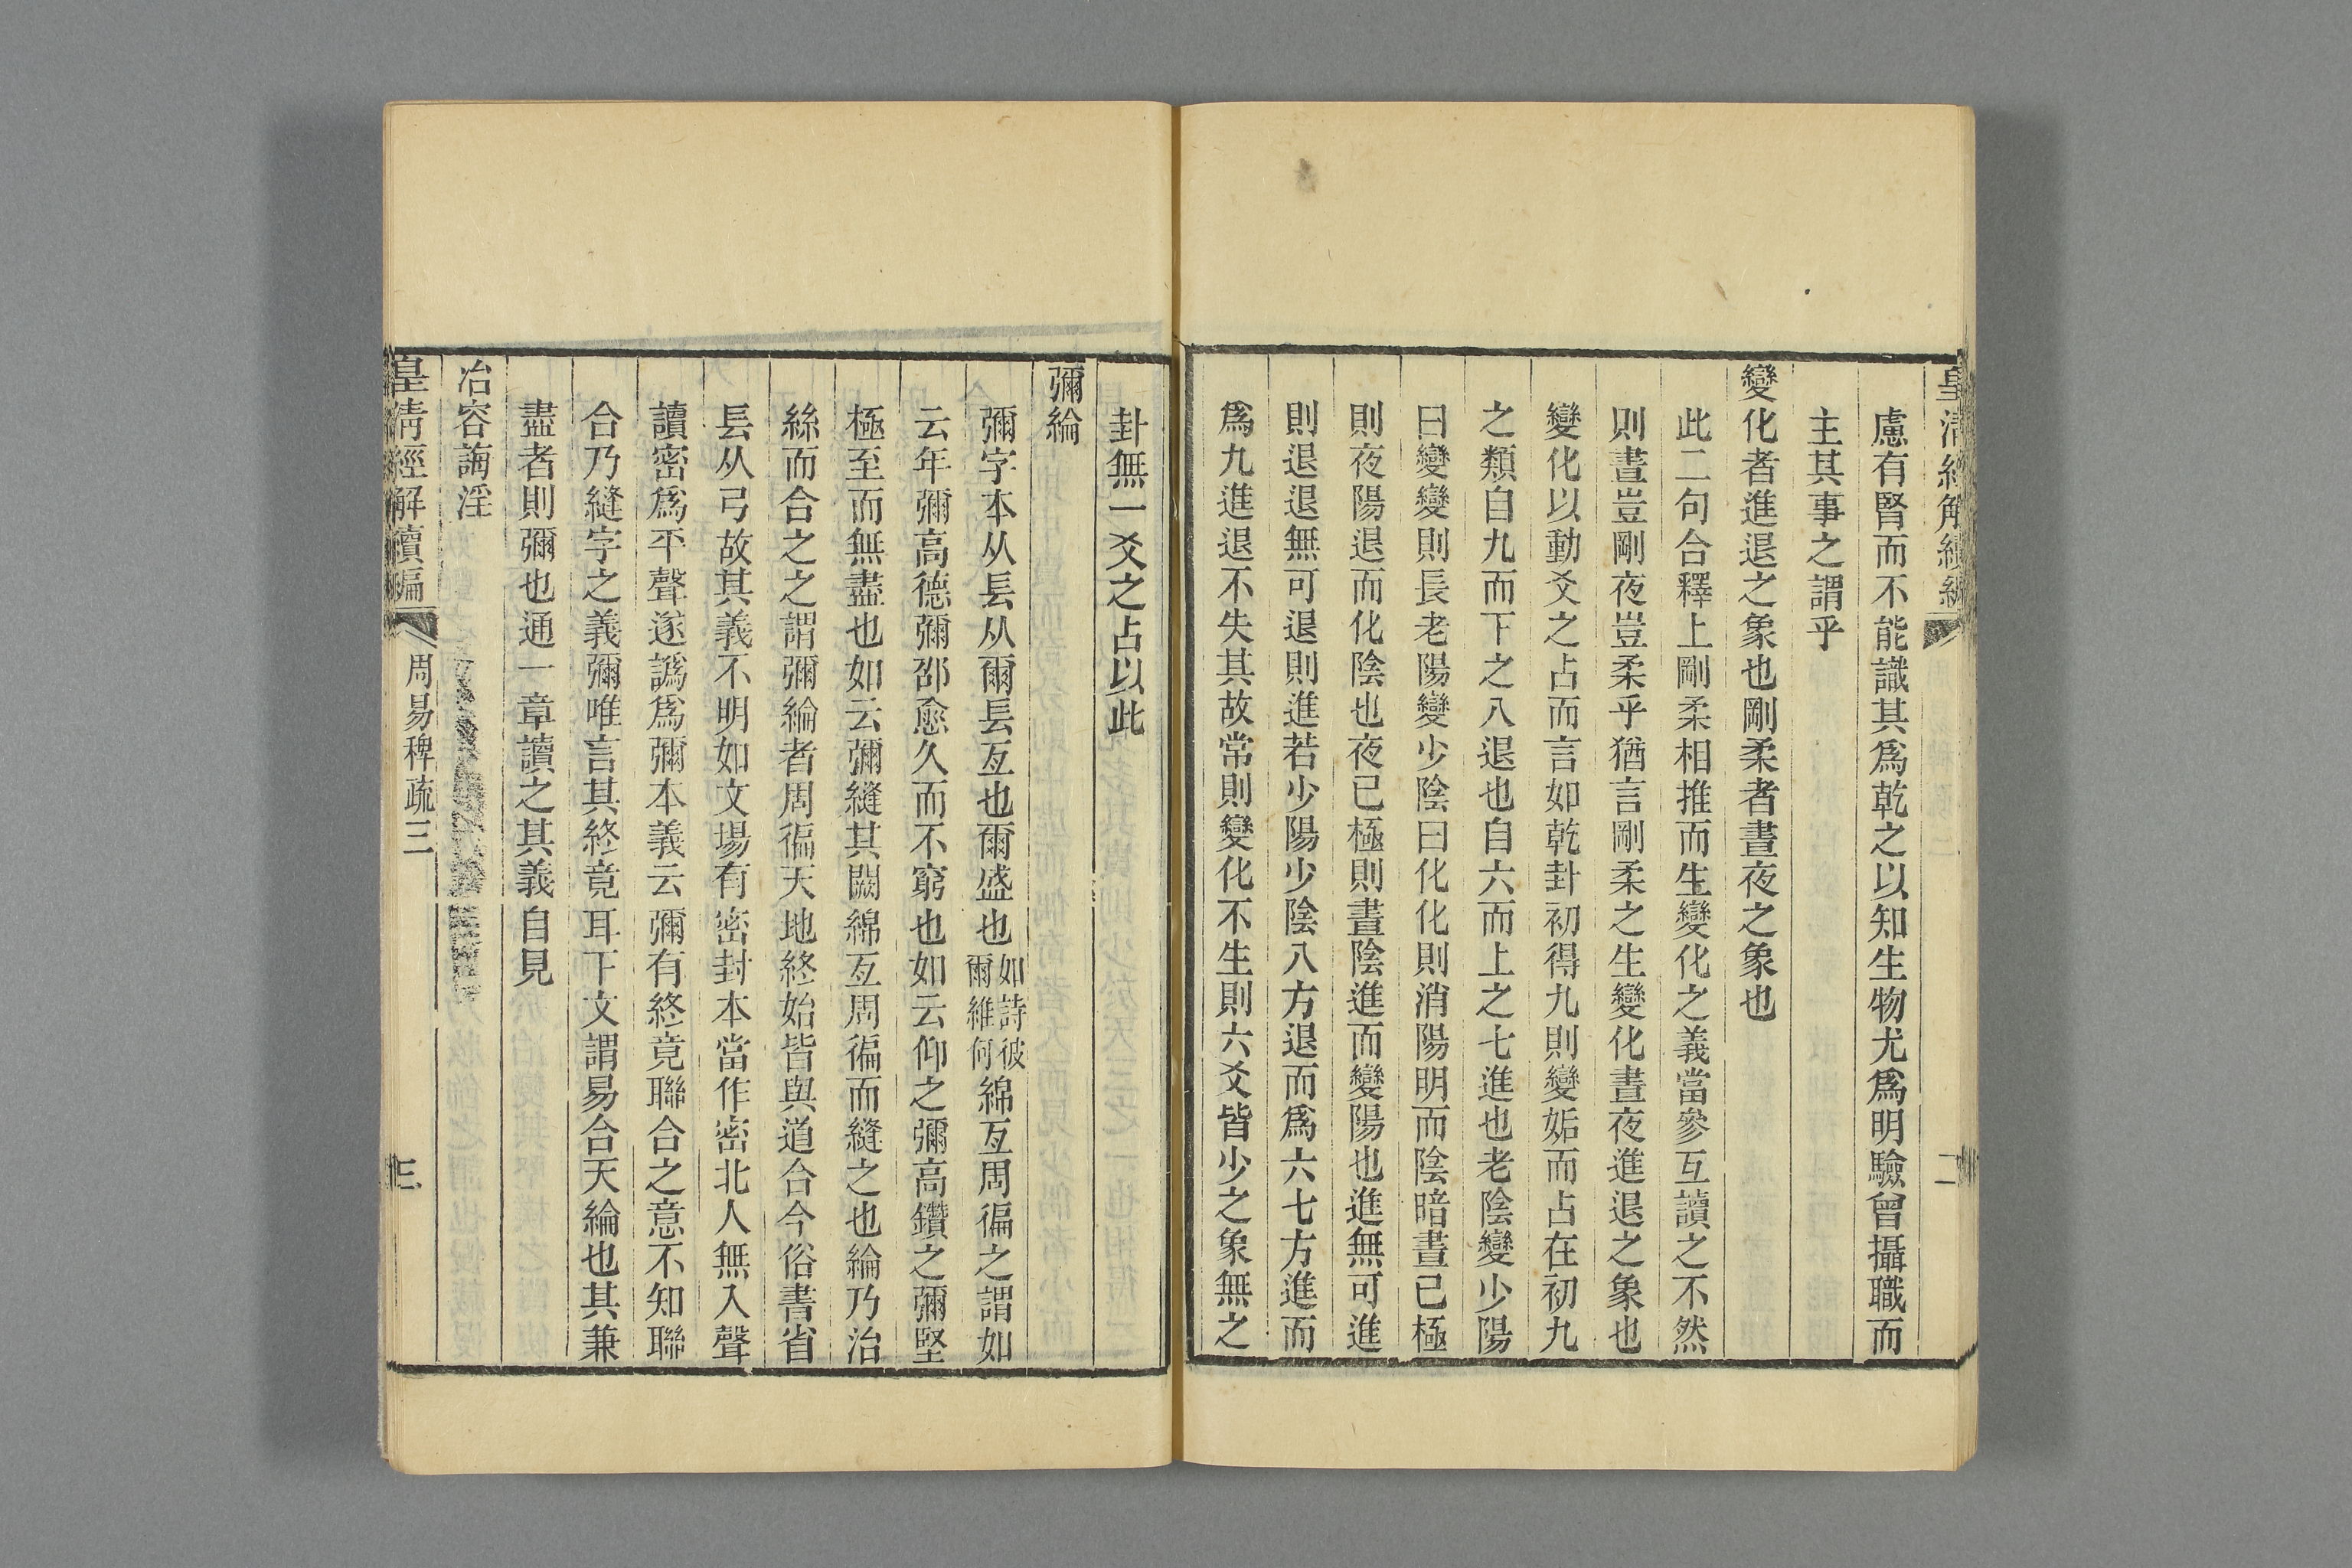 皇清經解續編
二
慮有腎而不能識其爲乾之以知生物尤爲明驗曾攝職而
主其事之謂乎
變化者進退之象也剛柔者晝夜之象也
此二句合釋上剛柔相推而生變化之義當參互讀之不然
則晝豈剛夜豈柔乎猶言剛柔之生變化晝夜進退之象也
變化以動爻之占而言如乾卦初得九則變姤而占在初九
之類自九而下之八退也自六而上之七進也老陰變少陽
曰變變則長老陽變少陰曰化化則消陽明而陰暗晝已極
則夜陽退而化陰也夜已極則晝陰進而變陽也進無可進
則退退無可退則進若少陽少陰八方退而爲六七方進而
爲九進退不失其故常則變化不生則六爻皆少之象無之
卦無一爻之占以此
彌綸
彌字本从镸从爾镸亙也爾盛也如詩彼爾維何綿亙周徧之謂如
云年彌高德彌邵愈久而不窮也如云仰之彌高鑽之彌堅
極至而無盡也如云彌縫其闕綿亙周徧而縫之也綸乃治
絲而合之之謂彌綸者周徧天地終始皆與道合今俗書省
镸从弓故其義不明如文場有密封本當作密北人無入聲
讀密爲平聲遂譌爲彌本義云彌有終竟聯合之意不知聯
合乃縫字之義彌唯言其終竟耳下文謂易合天綸也其兼
盡者則彌也通一章讀之其義自見
冶容誨淫
皇清經解續編
周易稗疏三
三